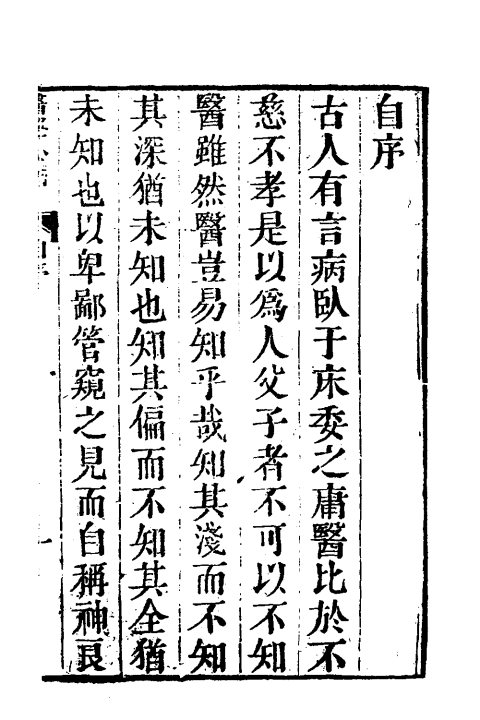 自序
古人有言病臥于床委之庸醫比於不
慈不孝是以爲人父子者不可以不知
醫雖然醫豈易知乎哉知其淺而不知
其深猶未知也知其偏而不知其全猶
未知也以卑鄙管窺之見而自稱神良